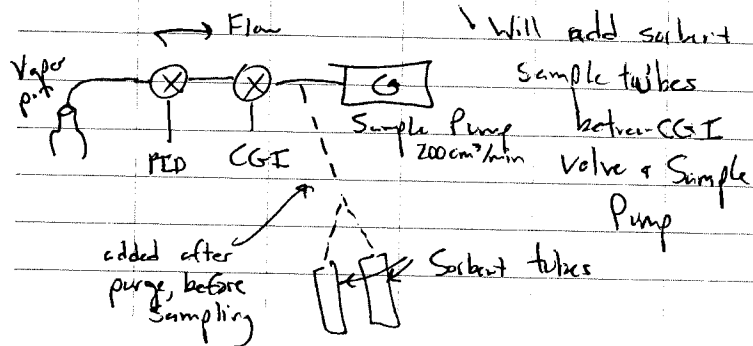 → Flow
Will add sorbent
Vapor
port
sample tubes
between CGI
valve & Sample
Pump
PID
CGI
Sample Pump
200cm³/min
added after
purge, before
sampling
Sorbent tubes